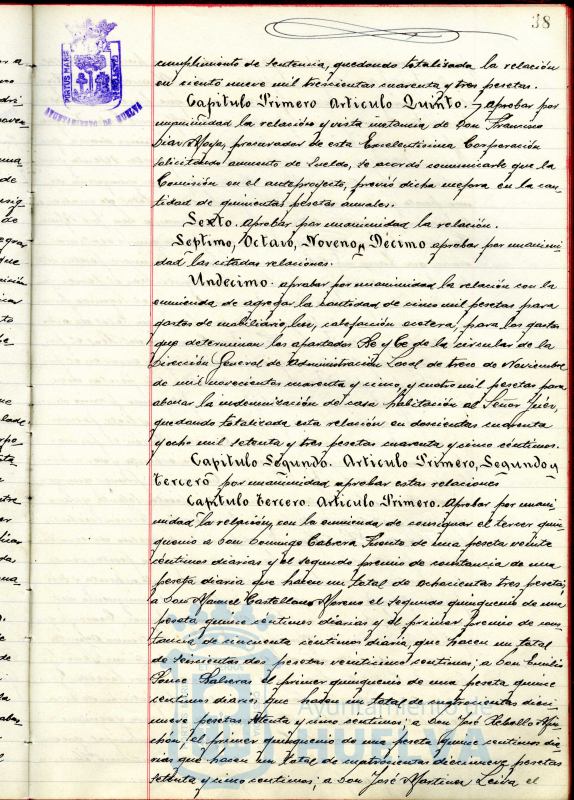 38
PORTUS MARIS
AYUNTAMIENTO DE HUELVA
cumplimiento de sentencia, quedando totalizada la relación
en ciento nueve mil trescientas cuarenta y tres pesetas.
Capitulo Primero Articulo Quinto. - Aprobar por
unanimidad la relación y vista instancia de Don Francisco
Diaz Moya, procurador de esta Excelentisima Corporación
solicitando aumento de sueldo, se acordó comunicarle que la
Comisión en el anteproyecto, previó dicha mejora en la can-
tidad de quinientas pesetas anuales.
Sexto. Aprobar por unanimidad la relación.
Septimo, Octavo, Noveno y Décimo aprobar por unanimi-
dad las citadas relaciones.
Undécimo. aprobar por unanimidad la relación con la
enmienda de agregar la cantidad de cinco mil pesetas para
gastos de mobiliario, luz, calefacción etcetera, para los gastos
que determinan los apartados Be y Ce de la circular de la
Dirección General de Administración Local de trece de Noviembre
de mil novecientos cuarenta y cinco, y cuatro mil pesetas para
abonar la indemnización del casa habitación al Señor Juez,
quedando totalizada esta relación en doscientas cuarenta
y ocho mil setenta y tres pesetas cuarenta y cinco centimos.
Capitulo Segundo. Articulo Primero, Segundo y
Tercero por unanimidad aprobar estas relaciones
Capitulo Tercero. Articulo Primero. Aprobar por unani-
midad la relación, con la enmienda de consignar el tercer quin-
quenio a Don Domingo Cabrera de una peseta veinte
centimos diarias y el segundo premio de constancia de una
peseta diaria que hacen un total de ochocientas tres pesetas;
a Don Manuel Castellano Moreno el segundo quinquenio de una
peseta quince centimos diarias y el primer premio de cons-
tancia de cincuenta centimos diaria, que hacen un total
de seiscientas dos pesetas veinticinco centimos; a Don Emilio
Ponce el primer quinquenio de una peseta quince
centimos diarias que hacen un total de cuatrocientas dieci-
nueve pesetas setenta y cinco centimos; a Don José Rebollo
el primer quinquenio de una peseta quince centimos dia-
rias que hacen un total de cuatrocientas diecinueve pesetas
setenta y cinco centimos; a Don José Martinez Leiva el
Ayuntamiento de
HUELVA